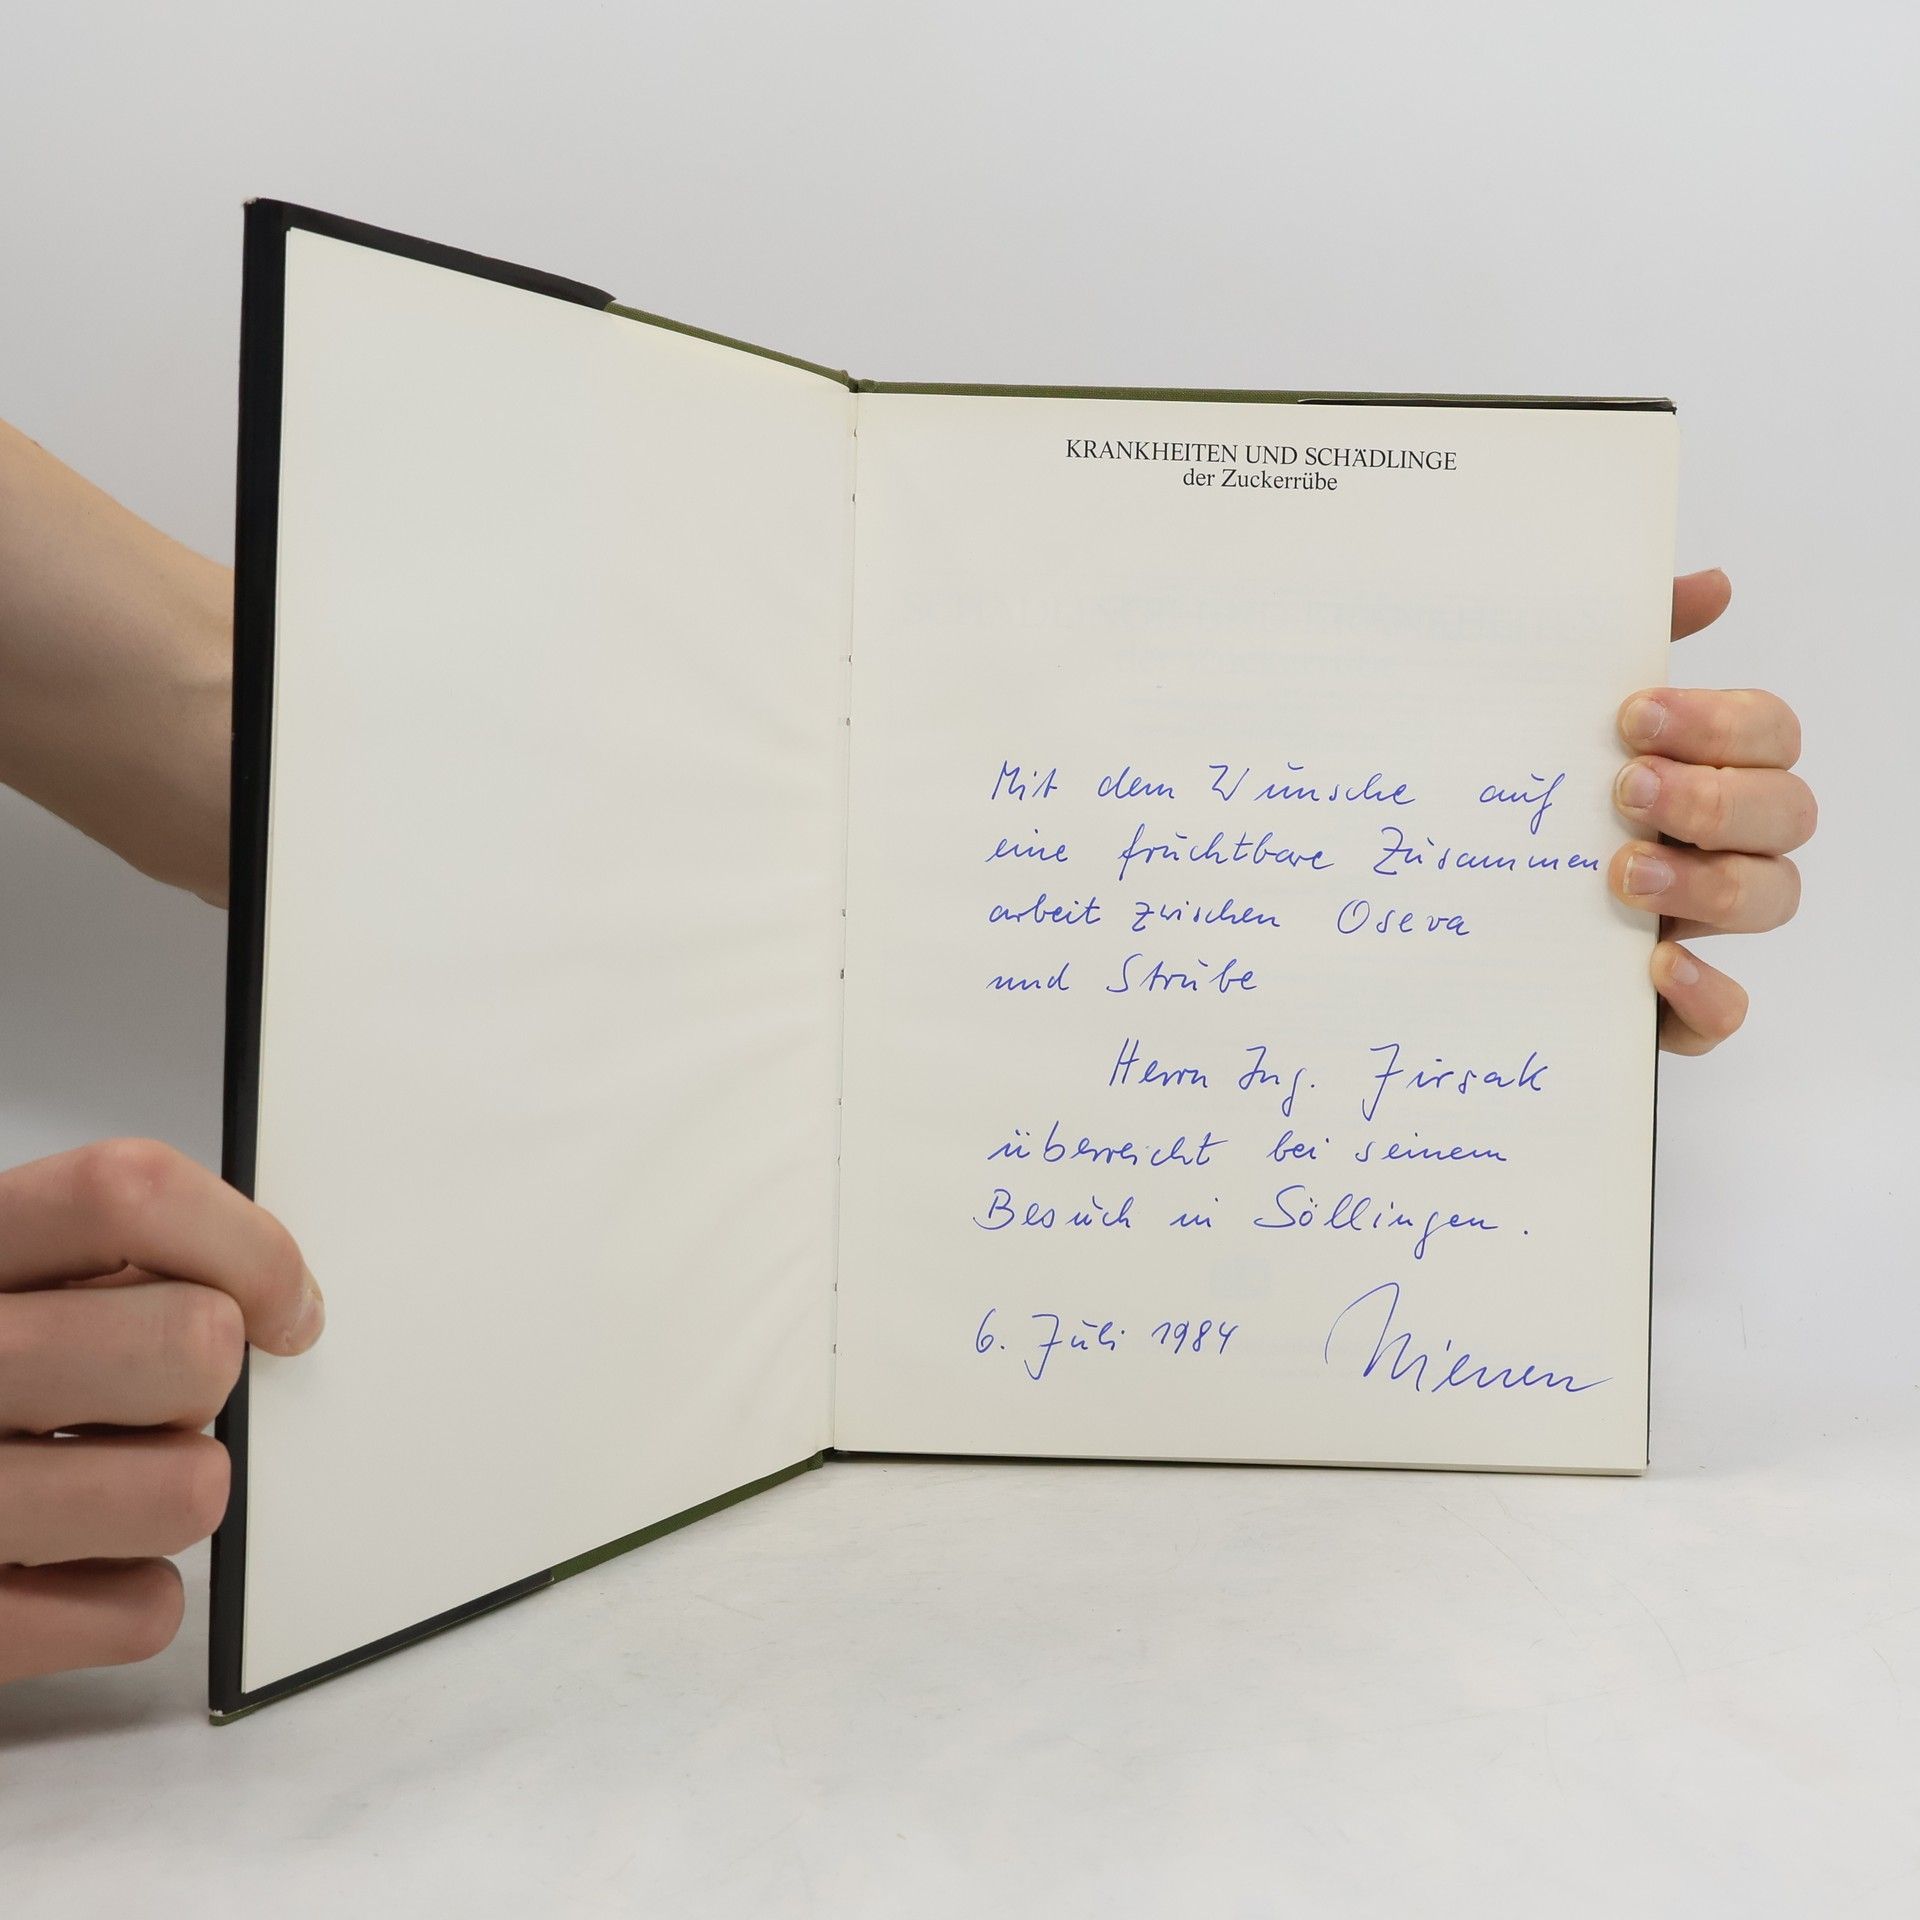 KRANKHEITEN UND SCHÄDLINGE
der Zuckerrübe
Mit dem Wunsche auf
eine fruchtbare Zusammen
arbeit zwischen Oseva
und Strube
Herrn Ing. Jirsak
überreicht bei seinem
Besuch in Söllingen.
6. Juli 1984